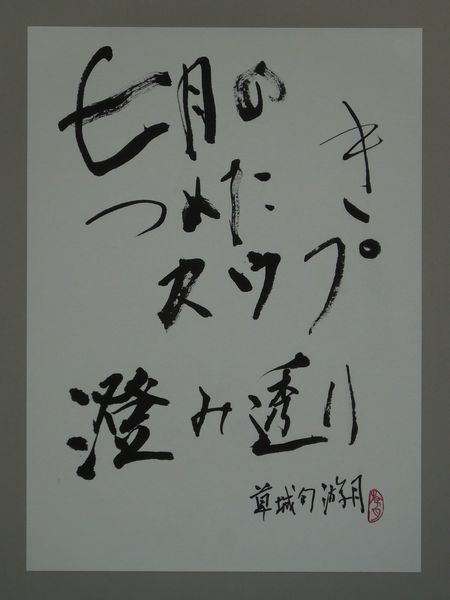 七月の
つめたき
スウプ
澄み透り
草城句 游月